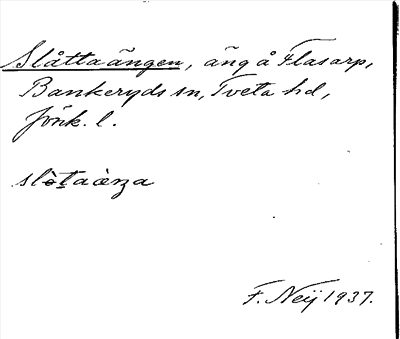 Slåttaängen, äng å Flasarp,
Bankeryds sn, Tveta hd,
Jönk. l.
F. Neij 1937.